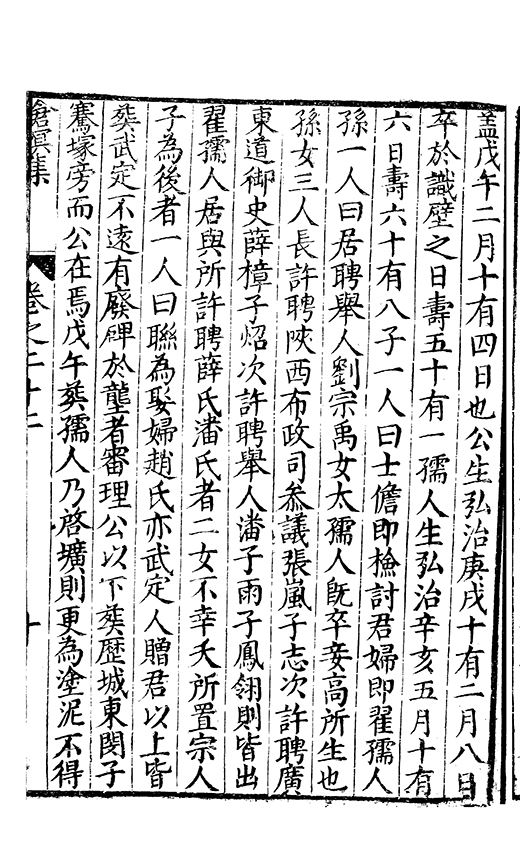 蓋戊午二月十有四日也公生弘治庚戌十有二月八日
卒於識壁之日壽五十有一孺人生弘治辛亥五月十有
六日壽六十有八子一人曰士儋即檢討君婦即翟孺人
孫一人曰居聘舉人劉宗禹女太孺人旣卒妾高所生也
孫女三人長許聘陝西布政司叅議張嵐子志次許聘廣
東道御史薛樟子炤次許聘舉人潘子雨子鳳翎則皆出
翟孺人居與所許聘薛氏潘氏者二女不幸夭所置宗人
子為後者一人曰聯為娶婦趙氏亦武定人贈君以上皆
葬武定不遠有廢碑於壟者審理公以下葬歷城東閔子
騫塚旁而公在焉戊午葬孺人乃啓壙則更為塗泥不得
滄溟集
卷之二十二
十